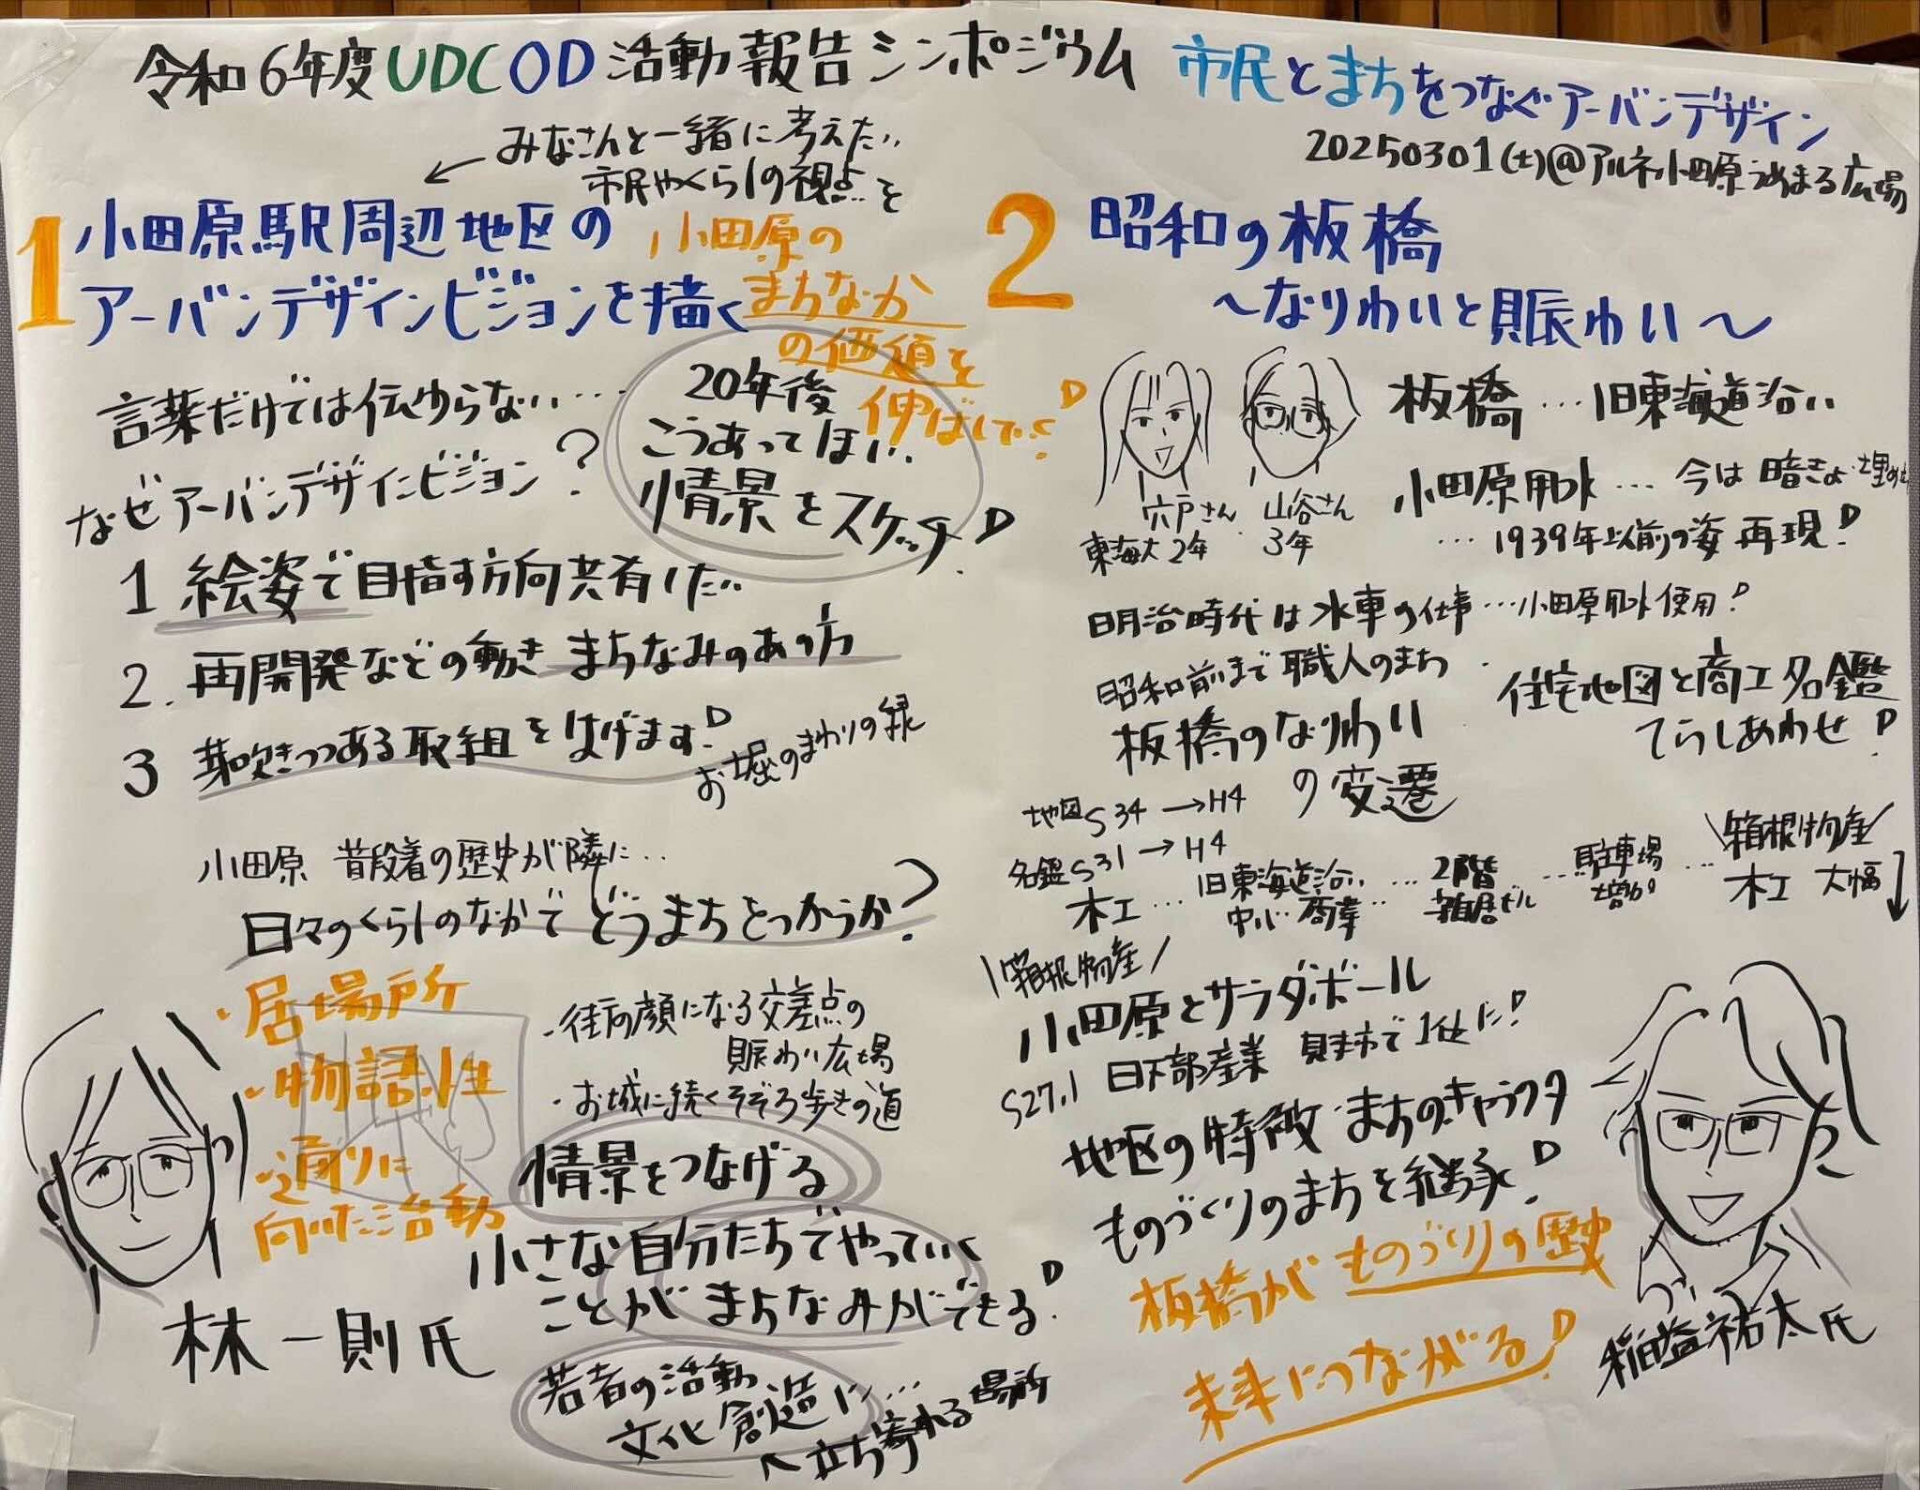 令和6年度UDCOD活動報告シンポジウム
市民とまちをつなぐアーバンデザイン
20250301(土)@アルネ小田原うめまる広場
みなさんと一緒に考えたい
市民やくらしの視点を
1 小田原駅周辺地区の
アーバンデザインビジョンを描く
小田原の
まちなか
の価値を
伸ばして!
言葉だけでは伝わらない…
なぜアーバンデザインビジョン?
20年後
こうあってほしい
情景をスケッチ!
1 絵姿で目指す方向共有したい
2. 再開発などの動き まちなみのあり方
3 芽吹きつつある取組をはげます!
お堀のまわりの緑
小田原 普段着の歴史が隣に…
日々のくらしのなかでどうまちをつかうか?
・居場所
・物語性
・通りに
向いた活動
・街の顔になる交差点の
賑わい広場
・お城に続くそぞろ歩きの道
情景をつなげる
小さな自分たちでやっていく
ことがまちなみができる!
若者の活動
文化創造に…
立ち寄れる場所
林一則氏
2 昭和の板橋
〜なりわいと賑わい〜
穴戸さん
東海大2年
山谷さん
3年
板橋…旧東海道沿い
小田原用水…今は暗きょ
…1939年以前の姿再現!
明治時代は水車の仕事…小田原用水使用!
昭和前まで職人のまち
板橋のなりわい
の変遷
住宅地図と商工名鑑
てらしあわせ!
地図S34→H4
名鑑S31→H4
木工…旧東海道沿い
中小商業…
2階
…駐車場
増加
…\箱根物産/
木工 大幅↓
\箱根物産/
小田原とサラダボール
S27.1 日下部産業 1位に!
地区の特徴・まちのキャラクタ
ものづくりのまちを継承!
板橋がものづくりの歴史
未来につながる!
稲益祐太氏